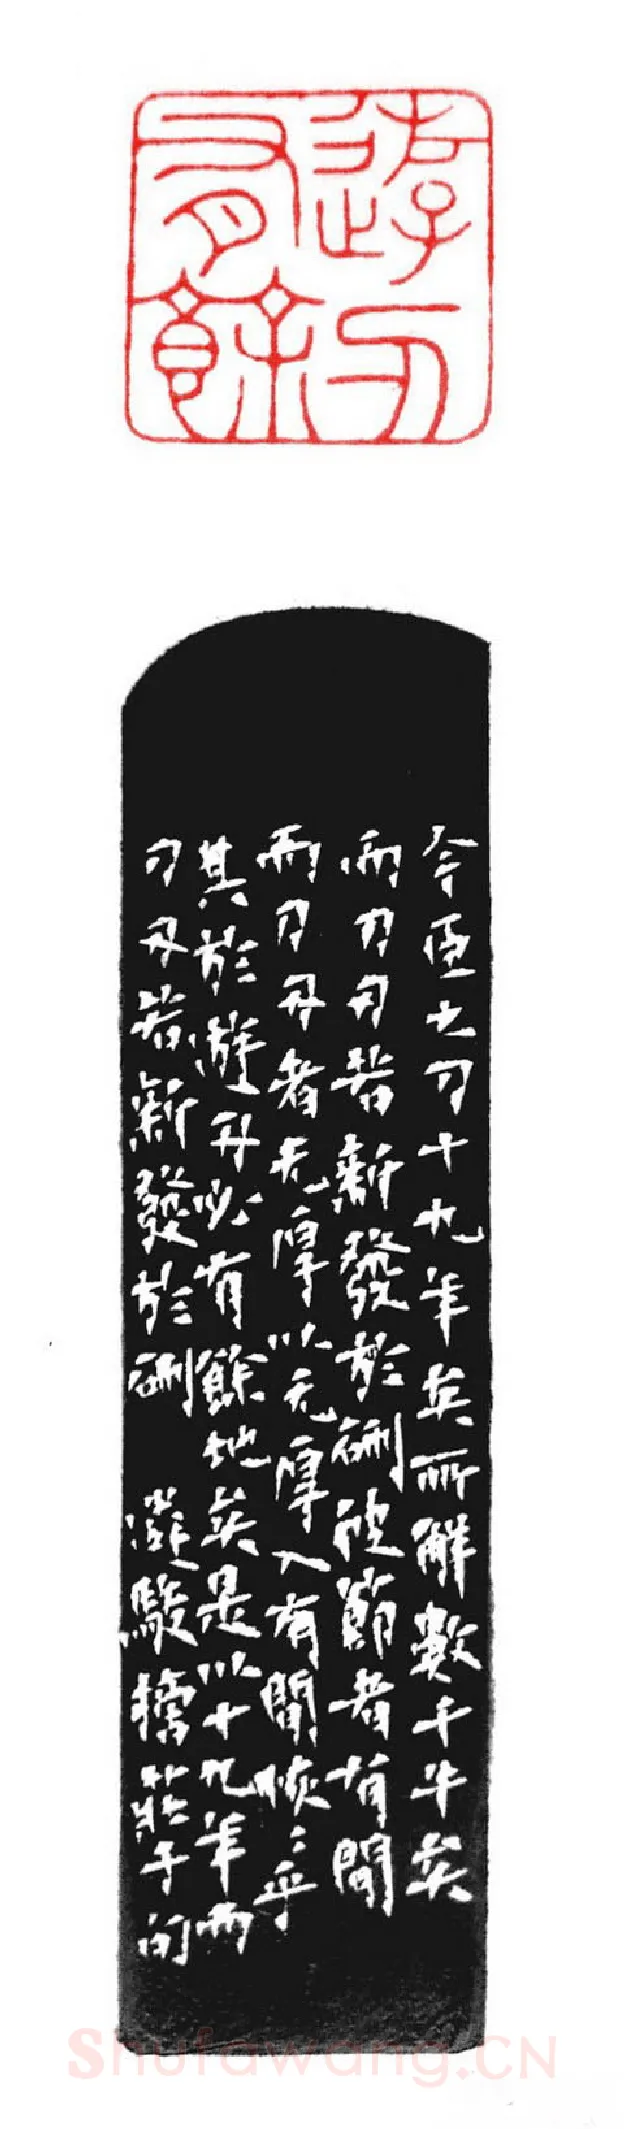 遊刃
有餘
今臣之刀十九年矣所解數千牛矣
而刀刃若新發於硎彼節者有間
而刀刃者无厚以无厚入有間恢〻乎
其於遊刃必有餘地矣是以十九年而
刀刃若新發於硎 駿 莊子句
Shufawang.CN